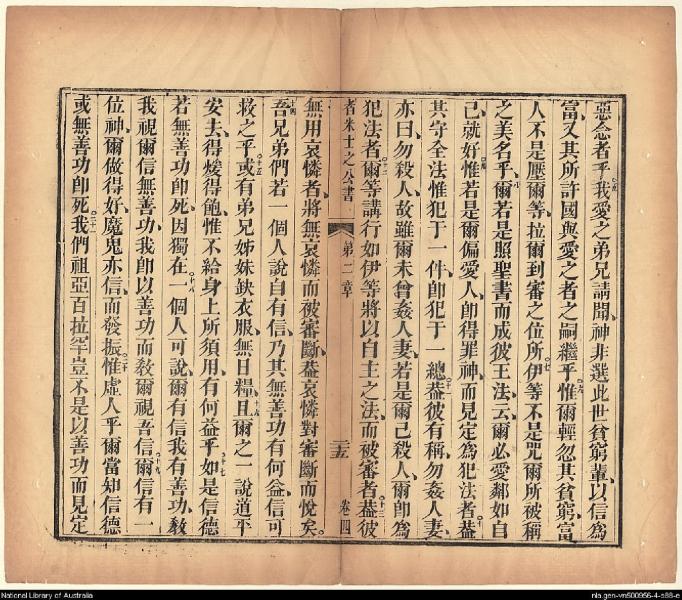 惡念者乎我愛之弟兄請聞神非選此世貧窮輩以信為
富又其所許國與愛之者之嗣繼乎惟爾輕忽其貧窮富
人不是壓爾等拉爾到審之位所伊等不是咒爾所被稱
之美名乎爾若是照聖書而成彼王法云爾必愛鄰如自
己就好惟若是爾偏愛人即得罪神而見定為犯法者蓋
其守全法惟犯于一件即犯于一總蓋彼有稱勿姦人妻
亦曰勿殺人故雖爾未曾姦人妻若是爾己殺人爾即為
犯法者爾等講行如伊等將以自主之法而被審者蓋彼
者米士之公書 第二章 二十五 卷四
無用哀憐者將無哀憐而被審斷蓋哀憐對審斷而悅矣
吾兄弟們若一個人說自有信乃其無善功有何益信可
救之乎或有弟兄姊妹缺衣服無日糧且爾之一說道平
安去得煖得飽惟不給身上所須用有何益乎如是信德
若無善功即死因獨在一個人可說爾有信我有善功敎
我視爾信無善功我即以善功而敎爾視吾信爾信有一
位神爾做得好魔鬼亦信而發振惟虛人乎爾當知信德
或無善功即死我們祖亞百拉罕豈不是以善功而見定
National Library of Australia
nla.gen-vn500956-4-s88-e